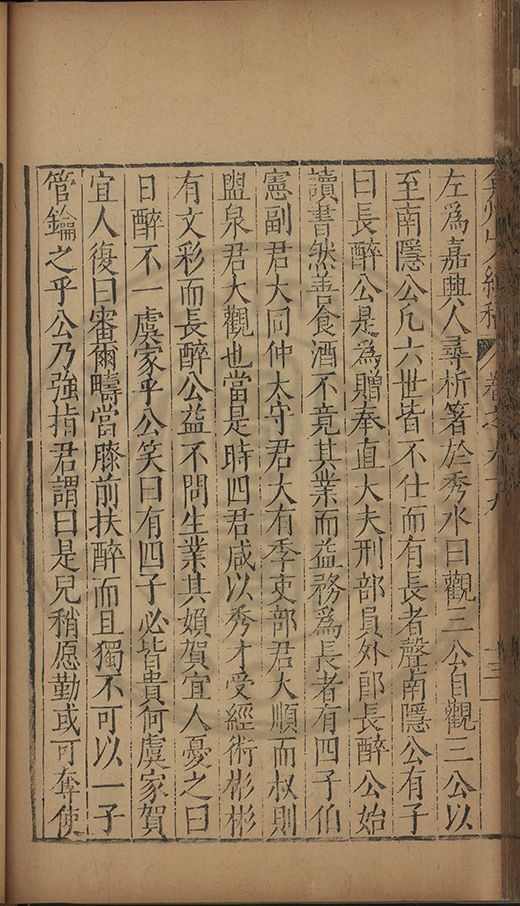 弇州山人續稿 卷之九十九 十三
左為嘉興人尋析箸於秀水曰觀三公自觀三公以
至南隱公凡六世皆不仕而有長者聲南隱公有子
曰長醉公是為贈奉直大夫刑部員外郎長醉公始
讀書然善食酒不竟其業而益務為長者有四子伯
憲副君大同仲太守君大有季吏部君大順而叔則
盟泉君大觀也當是時四君咸以秀才受經術彬彬
有文彩而長醉公益不問生業其媍賀宜人憂之曰
日醉不一虞家乎公笑曰有四子必皆貴何虞家賀
宜人復曰審爾疇當膝前扶醉而且獨不可以一子
管鑰之乎公乃強指君謂曰是兒稍愿勤或可奪使